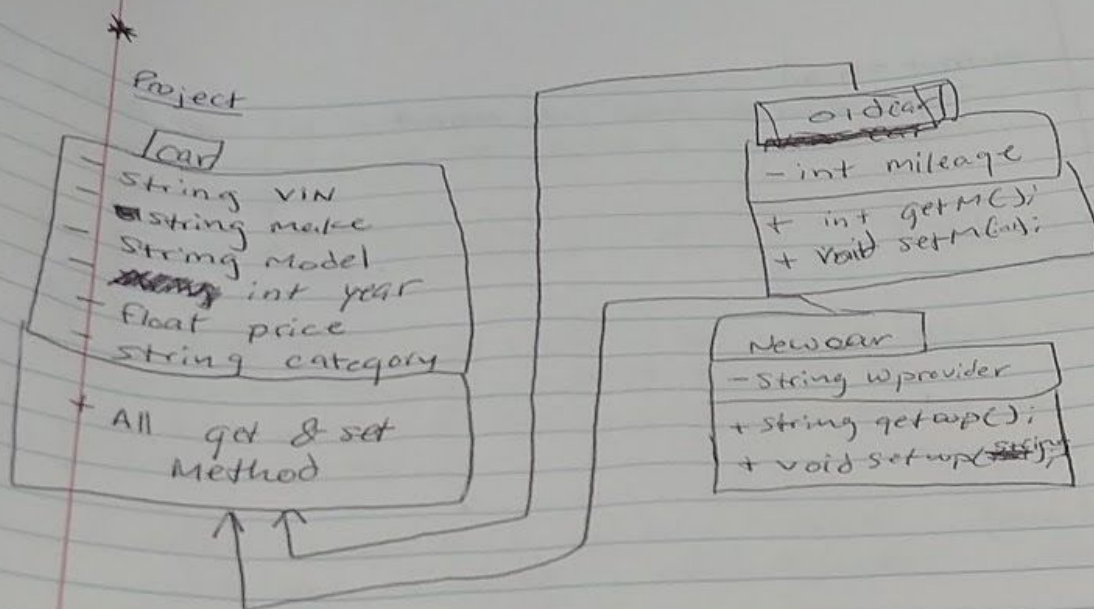 Project
Car
- String VIN
- String make
- String Model
- int year
- float price
- String category
+ All get & set
Method
oldcar
- int mileage
+ int getM();
+ void setM(int);
Newcar
- String wprovider
+ String getwp();
+ void setwp(string);